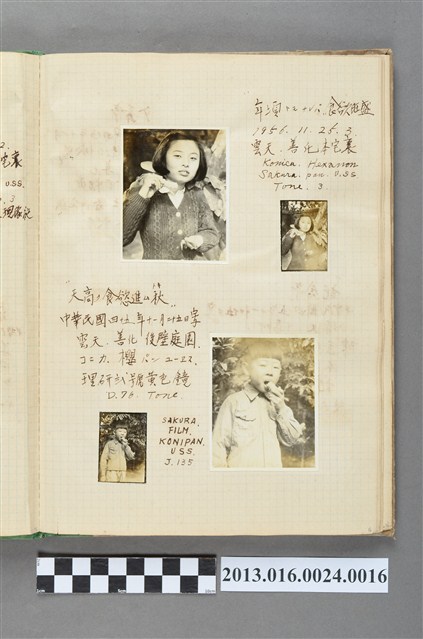 年頃十七、八、食欲旺盛
1956. 11. 25. 3.
雲天. 善化本宅裏
Konica. Hexanon
Sakura. pan. U.SS
Tone. 3.
天高ク食慾進ム秋..
中華民國四十五年十一月二十五日
雲天. 善化 後壁庭園.
コニカ. 櫻パン 2-22.
理研弐號黄色鏡
D.76. Tone
SAKURA.
FILM.
KONIPAN.
USS.
J. 135
2.
宅裏
U.SS
. 3
2013.016.0024.0016